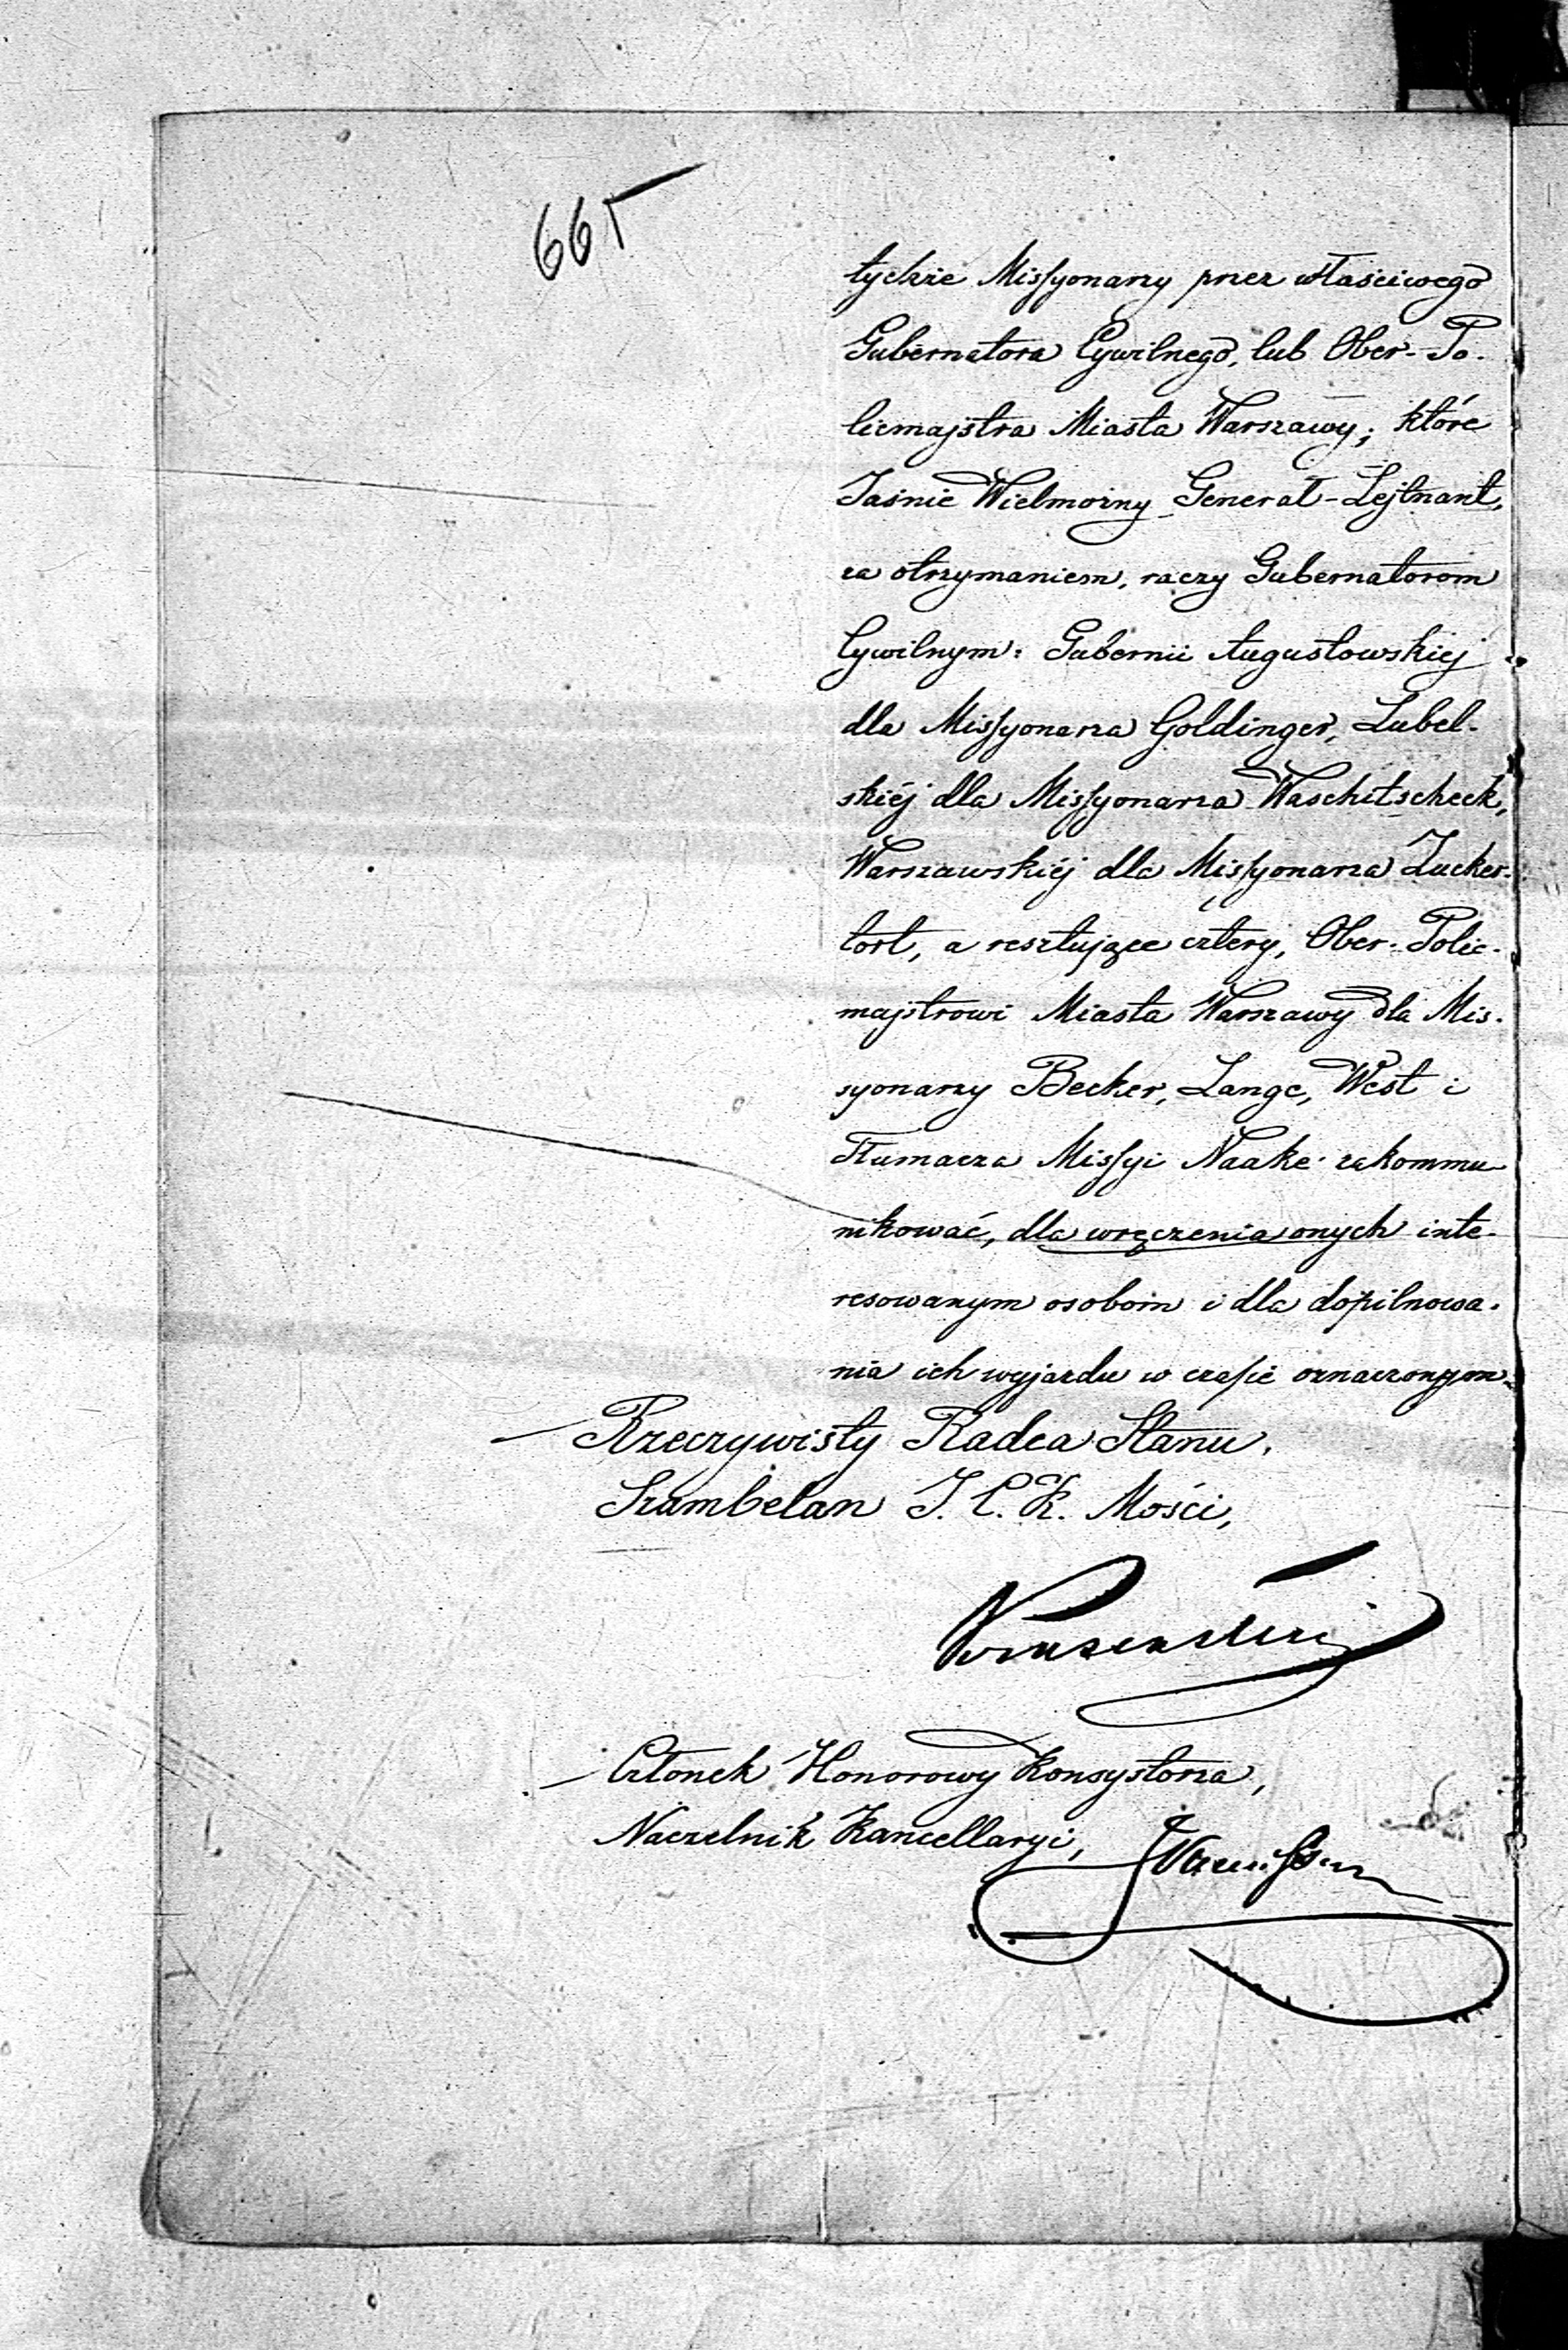 665
tychże Missyonarzy przez właściwego
Gubernatora Cywilnego, lub Ober-Po-
licmajstra Miasta Warszawy; które
Jaśnie Wielmożny Generał-Lejtnant,
za otrzymaniem, raczy Gubernatorom
Cywilnym: Gubernii Augustowskiej
dla Missyonarza Goldinger, Lubel-
skiéj dla Missyonarza Waschitscheck,
Warszawskiéj dla Missyonarza Zucker-
tort, a resztujące cztery, Ober-Polic-
majstrowi Miasta Warszawy dla Mis-
syonarzy Becker, Lange, West i
Tłumacza Missyi Naake zakommu-
nikować, dla wręczenia onych inte-
resowanym osobom i dla dopilnowa-
nia ich wyjazdu w czasie oznaczonym.
Rzeczywisty Radca Stanu,
Szambelan J. C. K. Mości,
Członek Honorowy Konsystorza,
Naczelnik Kancellaryi,